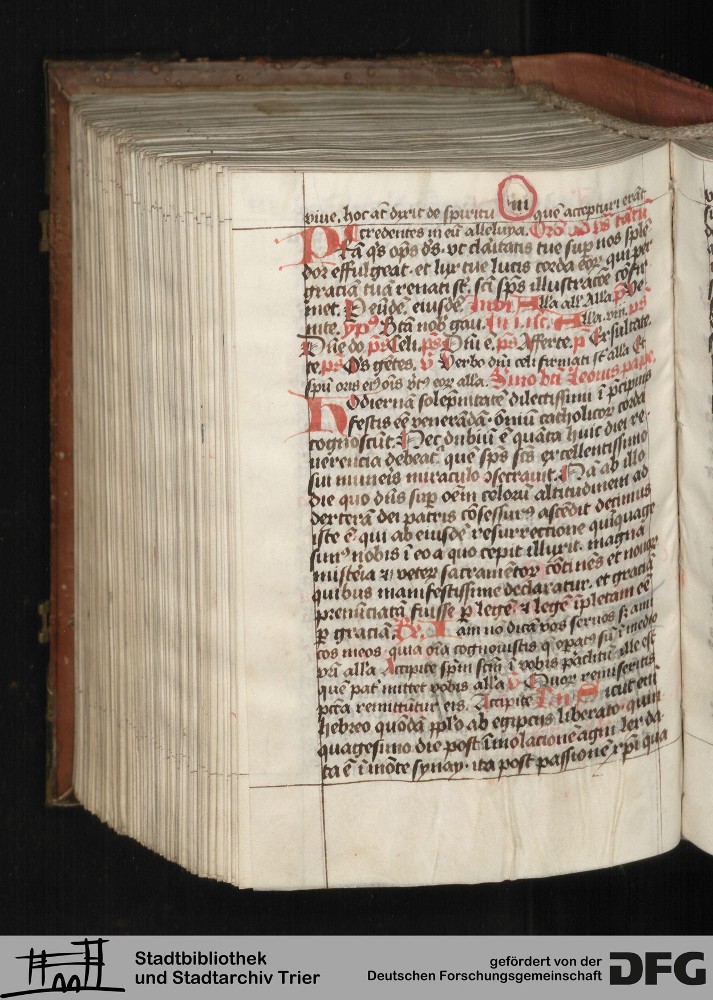 iiii
viue. hoc at dixit de spiritu quē accepturi erāt
credentes in eū alleluya. Oro
P̄ta q̄s op̄s ds. vt claritatis tue sup nos splē
dor effulgeat. et lux tue lucis corda eor̄ qui per
graciā tuā renati st̄. sc̄i sp̄s illustracōe cōfir
met. P eūdē. eiusdē. Inui. Alla all' Alla. ps Ve
nite. ymp9 Btā nob gau. In i. noc. An Alla. viii. ps
Dn̄e do ps Celi. ps Dn̄i ē. ps Afferte. p Exultate
te. ps Ds gētes. V Verbo dn̄i celi firmati st̄ alla Et
spū oris ei9 oīs vt9 eor alla. Smo bti Leonis pape.
Hodiernā solēpnitatē dilectissimi ī p̄cipuis
festis eē venerādā. om̄iū catholicor corda
cognoscūt. Nec dubiū ē quāta huic diei re
uerencia debeat̄. quē sp̄s sc̄s excellentissimo
sui muneis miraculo ɔsecrauit. Nā ab illo
die quo dn̄s sup om̄em celorū altitudinem ad
dexterā dei patris cōsessur9 ascēdit decimus
iste ē. qui ab eiusdē resurrectione quīquage
sim9 nobis ī eo a quo cepit illuxit. magna
misteria & veter sacramētor cōtinēs et nouor
quibus manifestissime declaratur. et graciā
prenūciatā fuisse p̄ legē. & legē īpletam eē
p̄ graciā. Re. Iam nō dicā vos seruos s; ami
cos meos. quia oīa cognouistis q̄ opat9 sū ī medio
vr̄i alla Accipite sp̄m sc̄m ī vobis pāclitū. ille est
quē pat̄ mittet vobis alla V Quor remiseritis
pctā remittūtur eis. Accipite Sicut eni
hebreo quōdā pplo ab egiptiis liberato. quin
quagesimo die post īmolacionē agni lex da
ta ē ī mōte synay. ita post passionē xpi qua
Stadtbibliothek
und Stadtarchiv Trier
gefördert von der
Deutschen Forschungsgemeinschaft
DFG